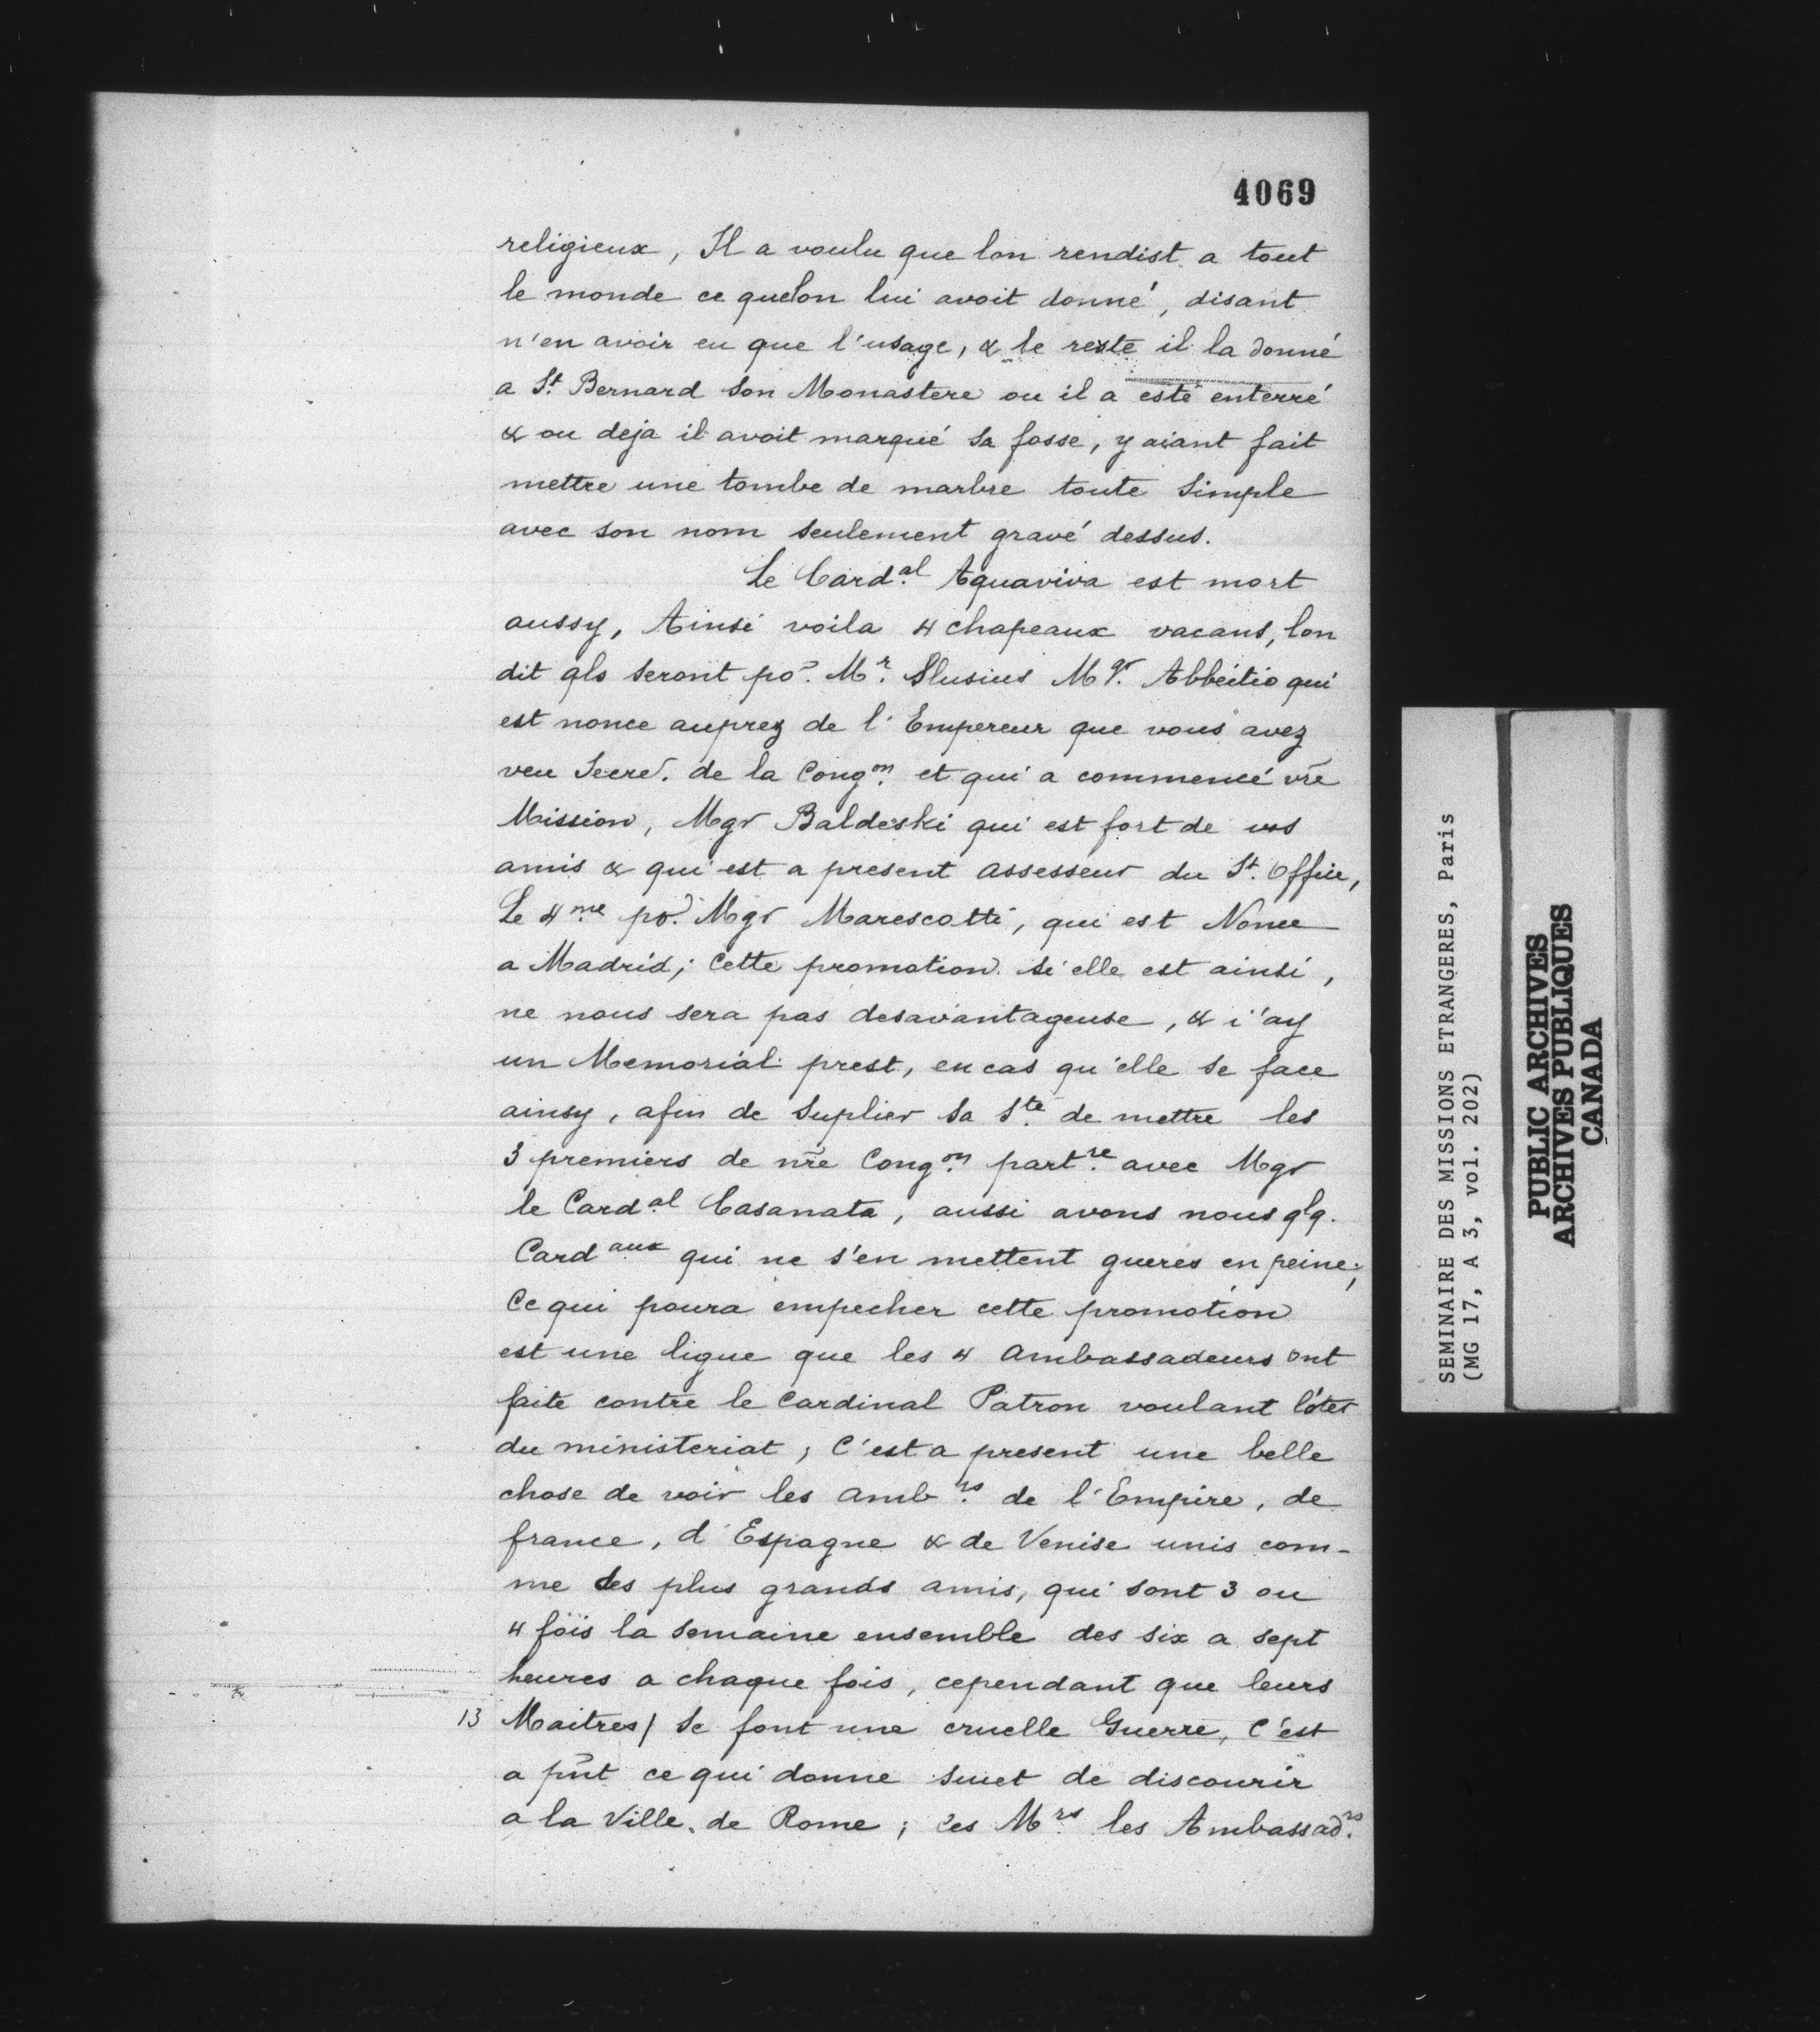 4069
religieux, Il a voulu que lon rendist a tout
le monde ce quelon lui avoit donné, disant
n'en avoir eu que l'usage, & le reste il la donné
a St. Bernard son Monastere ou il a esté enterré
& ou deja il avoit marqué sa fosse, y aiant fait
mettre une tombe de marbre toute simple
avec son nom seulement gravé dessus.
Le Card.al Aquaviva est mort
aussy, Ainsi voila 4 chapeaux vacans, lon
dit qls seront po.r Mr. Slusius Mgr. Abbéitio qui
est nonce auprez de l'Empereur que vous avez
veu Secre. de la Cong.on et qui a commencé vr̃e
Mission, Mgr Baldeski qui est fort de vos
amis & qui est a present assesseur du St. Office,
Le 4me po.r Mgr Marescotti, qui est Nonce
a Madrid; Cette promotion si elle est ainsi,
ne nous sera pas desavantageuse, & i'ay
un Memorial prest, en cas qu'elle se face
ainsy, afin de suplier sa Ste. de mettre les
3 premiers de nr̃e Cong.on part.re avec Mgr
le Card.al Casanata, aussi avons nous qlq.
Cardaux qui ne s'en mettent gueres en peine;
Ce qui poura empecher cette promotion
est une ligue que les 4 ambassadeurs ont
faite contre le Cardinal Patron voulant l'oter
du ministeriat; C'est a present une belle
chose de voir les amb.rs de l'Empire, de
france, d'Espagne & de Venise unis com-
me des plus grands amis, qui sont 3 ou
4 fois la semaine ensemble des six a sept
heures a chaque fois, cependant que leurs
13 Maitres/ se font une cruelle Guerre, C'est
a pñt ce qui donne suiet de discourir
a la Ville de Rome; ces Mrs. les Ambassad.rs
SEMINAIRE DES MISSIONS ETRANGERES, Paris
(MG 17, A 3, vol. 202)
PUBLIC ARCHIVES
ARCHIVES PUBLIQUES
CANADA